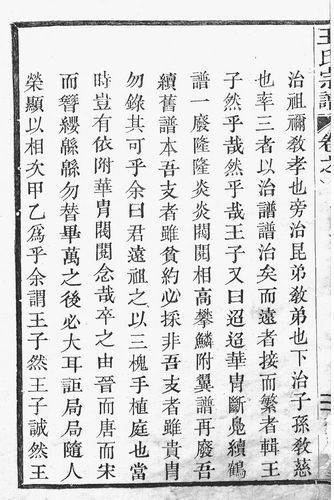 王氏宗譜
卷之
治祖禰敎孝也旁治昆弟敎弟也下治子孫敎慈
也率三者以治譜譜治矣而遠者接而繁者輯王
子然乎哉然乎哉王子又曰迢迢華冑斷鳧續鶴
譜一廢隆隆炎炎閥閱相高攀鱗附翼譜再廢吾
續舊譜本吾支者雖貧約必採非吾支者雖貴冑
勿錄其可乎余曰君遠祖之以三槐手植庭也當
時豈有依附華冑閥閱念哉卒之由晉而唐而宋
而簪纓緜緜勿替畢萬之後必大耳詎局局隨人
榮顯以相次甲乙爲乎余謂王子然王子誠然王